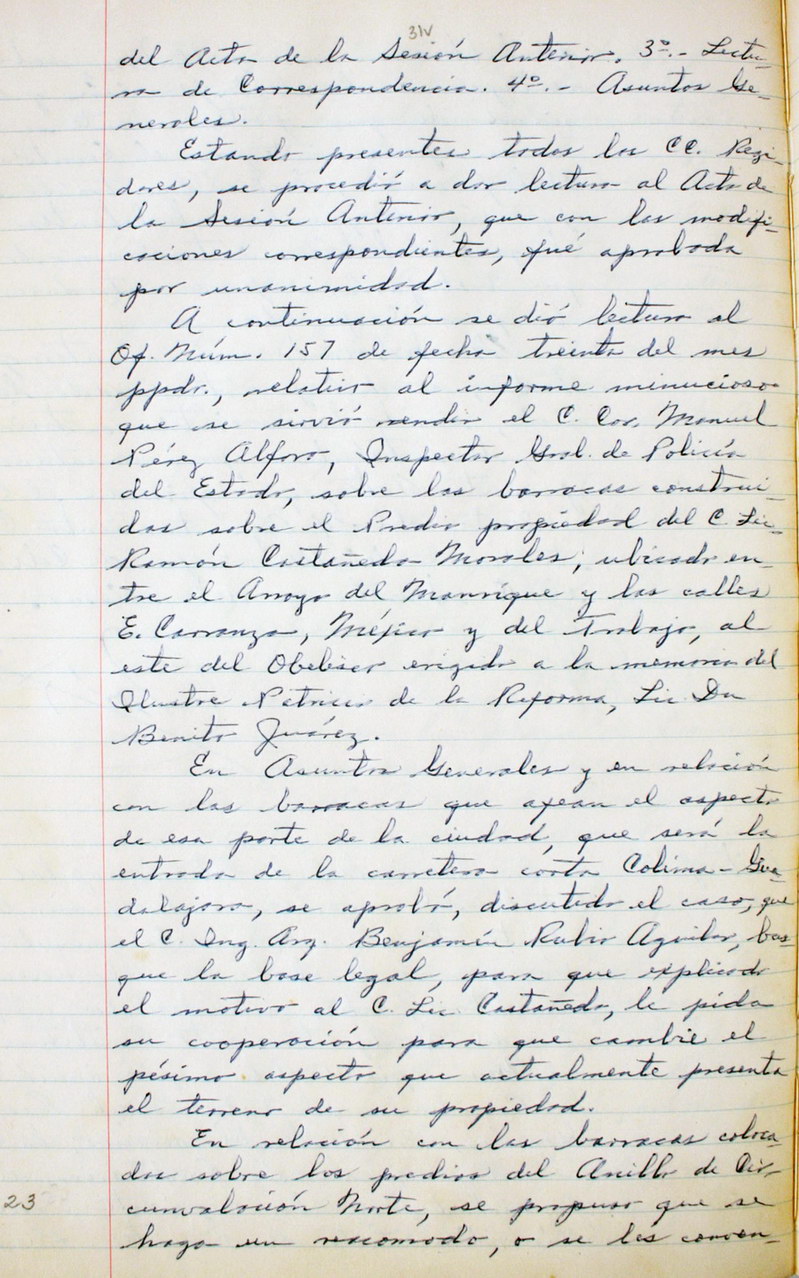 31v
del Acta de la Sesión Anterior. 3º.- Lectu-
ra de Correspondencia. 4º.- Asuntos Ge-
nerales.
Estando presentes todos los CC. Regi-
dores, se procedió a dar lectura al Acta de
la Sesión Anterior, que con las modifi-
caciones correspondientes, fué aprobada
por unanimidad.
A continuación se dió lectura al
Of. Núm. 157 de fecha treinta del mes
ppdo., relativo al informe minucioso
que se sirvió rendir el C. Cor. Manuel
Pérez Alfaro, Inspector Gral. de Policía
del Estado, sobre las barracas construi-
das sobre el Predio propiedad del C. Lic.
Ramón Castañeda Morales, ubicado en-
tre el Arroyo del Manrique y las calles
E. Carranza, Méjico y del Trabajo, al
este del Obelisco erigido a la memoria del
Ilustre Patricio de la Reforma, Lic Dn
Benito Juárez.
En Asuntos Generales y en relación
con las barracas que afean el aspecto
de esa parte de la ciudad, que será la
entrada de la carretera corta Colima-Gua-
dalajara, se aprobó, discutido el caso, que
el C. Ing. Arq. Benjamín Rubio Aguilar, bus-
que la base legal, para que explicado
el motivo al C. Lic. Castañeda, le pida
su cooperación para que cambie el
pésimo aspecto que actualmente presenta
el terreno de su propiedad.
En relación con las barracas coloca-
das sobre los predios del Anillo de Cir-
23 cunvalación Norte, se propuso que se
haga un reacomodo, o se les conven-